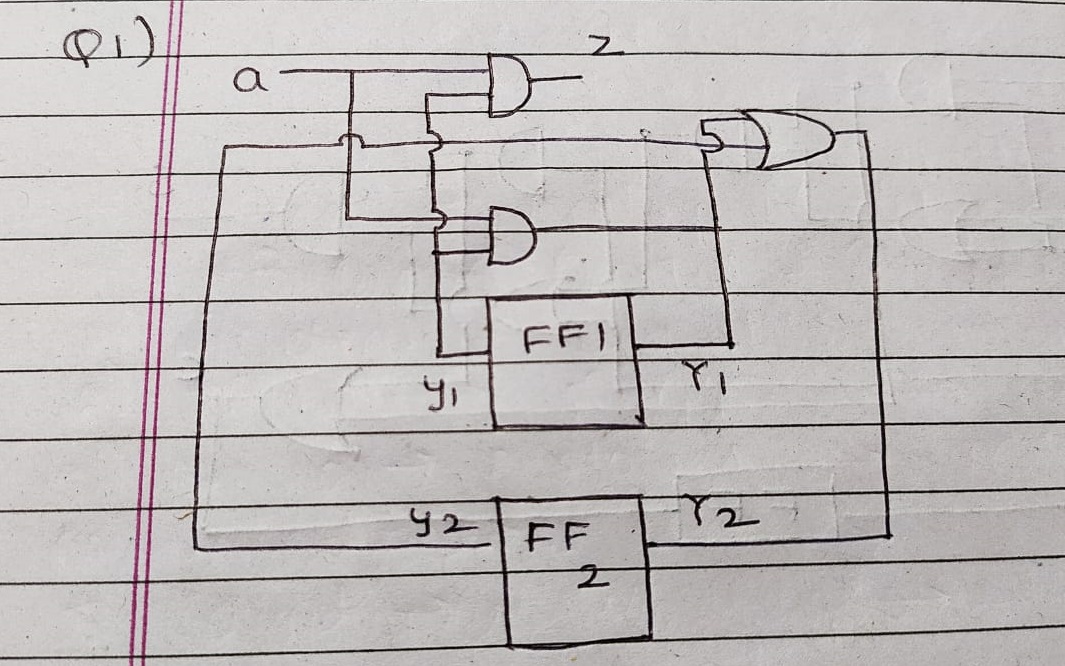 Q1)
a
z
FF1
y1
Y1
y2
FF
2
Y2